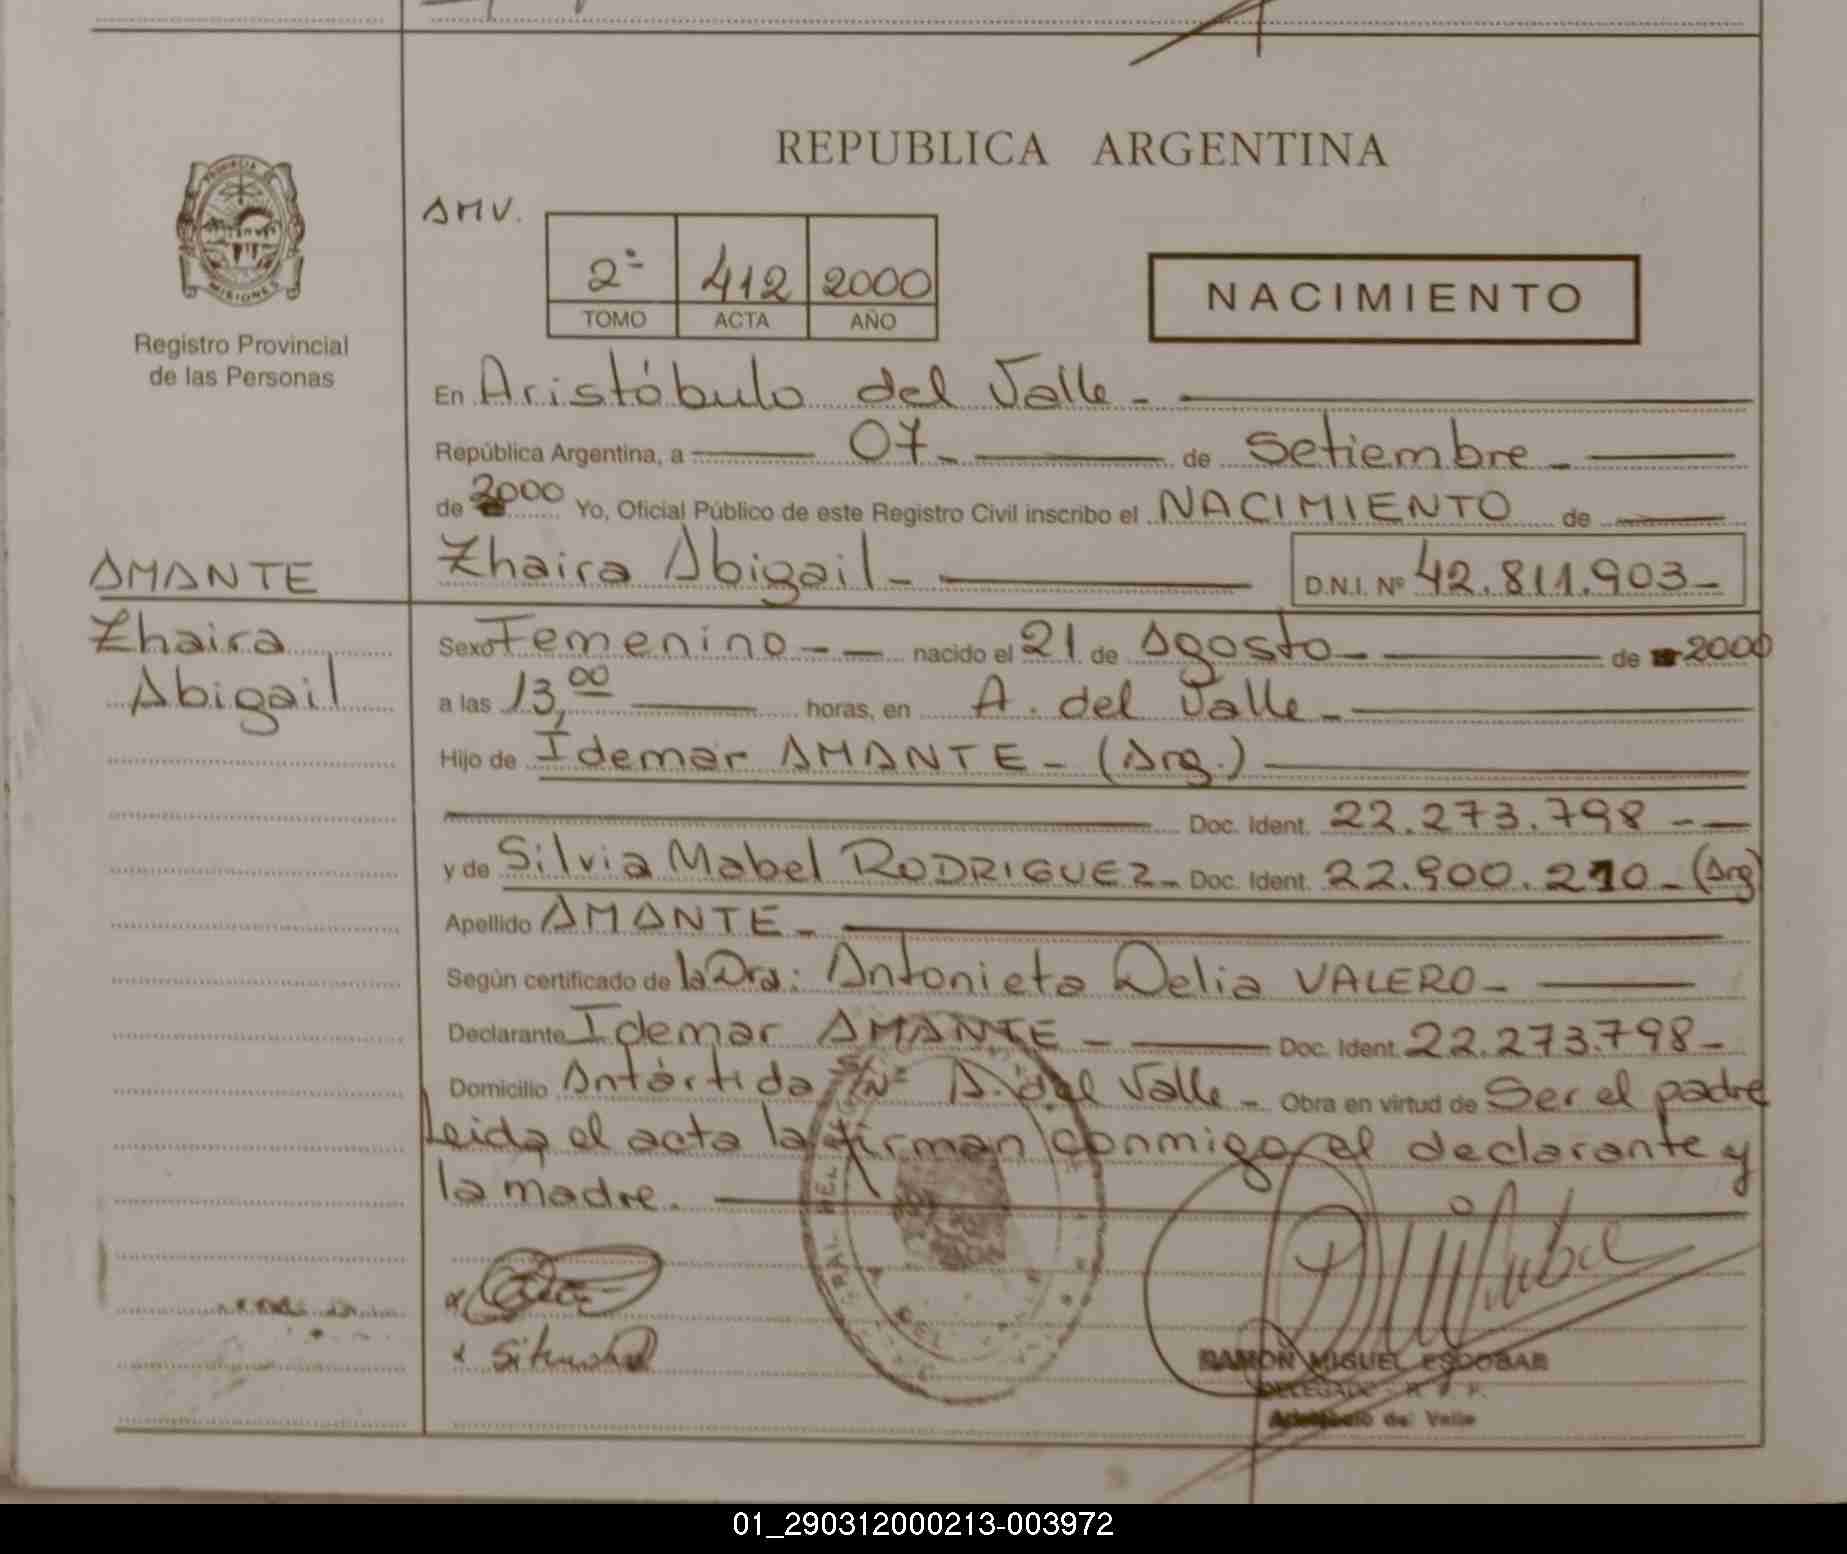 REPUBLICA ARGENTINA
PROVINCIA DE
MISIONES
Registro Provincial
de las Personas
AMV.
2º 412 2000
TOMO ACTA AÑO
NACIMIENTO
En Aristóbulo del Valle -
República Argentina, a 07 - de Setiembre -
de 2000 Yo, Oficial Público de este Registro Civil inscribo el NACIMIENTO de
Zhaira Abigail - D.N.I. Nº 42.811.903 -
AMANTE
Zhaira
Abigail
Sexo Femenino - - nacido el 21 de Agosto - de 2000
a las 13,00 horas, en A. del Valle -
Hijo de Idemar AMANTE - (Arg.)
Doc. Ident. 22.273.798 - -
y de Silvia Mabel RODRIGUEZ - Doc. Ident. 22.900.210 - (Arg)
Apellido AMANTE -
Según certificado de la Dra: Antonieta Delia VALERO -
Declarante Idemar AMANTE - Doc. Ident. 22.273.798 -
Domicilio Antártida S/Nº A. del Valle - Obra en virtud de Ser el padre
Leida el acta la firman conmigo el declarante y
la madre.
RAMON MIGUEL ESCOBAR
DELEGADO - R. P. P.
Aristóbulo del Valle
01_290312000213-003972